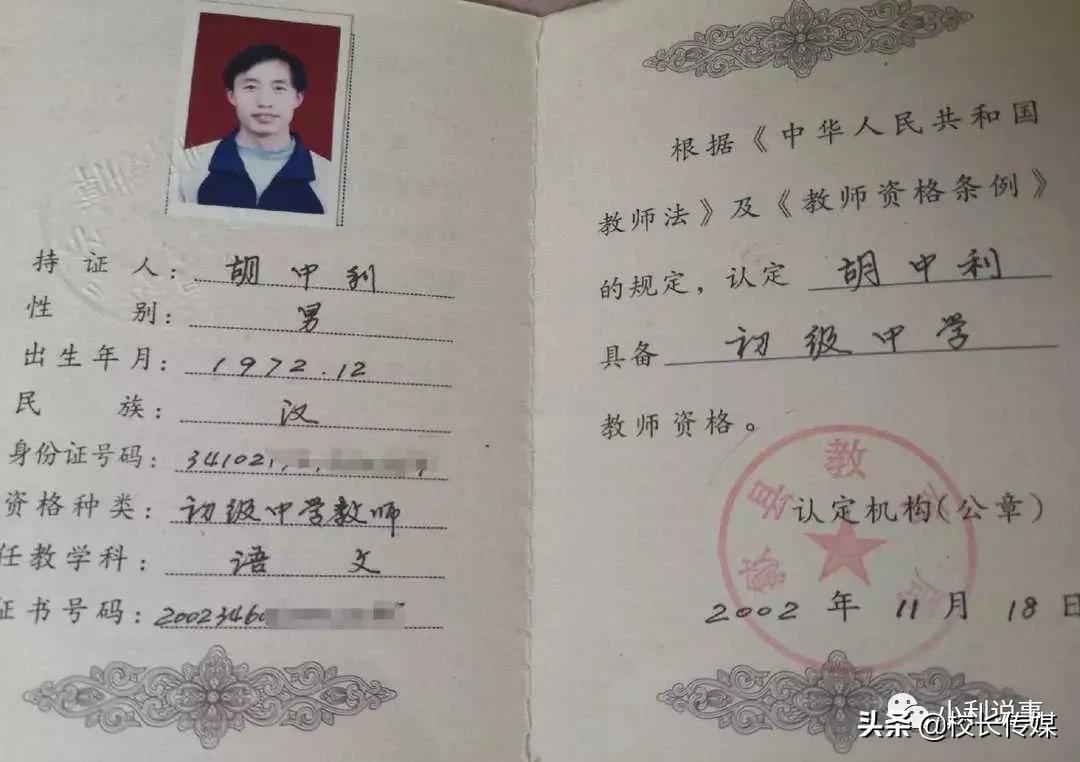 持证人：胡中利
性别：男
出生年月：1972.12
民族：汉
身份证号码：341021
资格种类：初级中学教师
任教学科：语文
证书号码：2002346
根据《中华人民共和国
教师法》及《教师资格条例》
的规定，认定 胡中利
具备 初级中学
教师资格。
教
县
认定机构（公章）
2002年11月18日
小利说事
头条@校长传媒